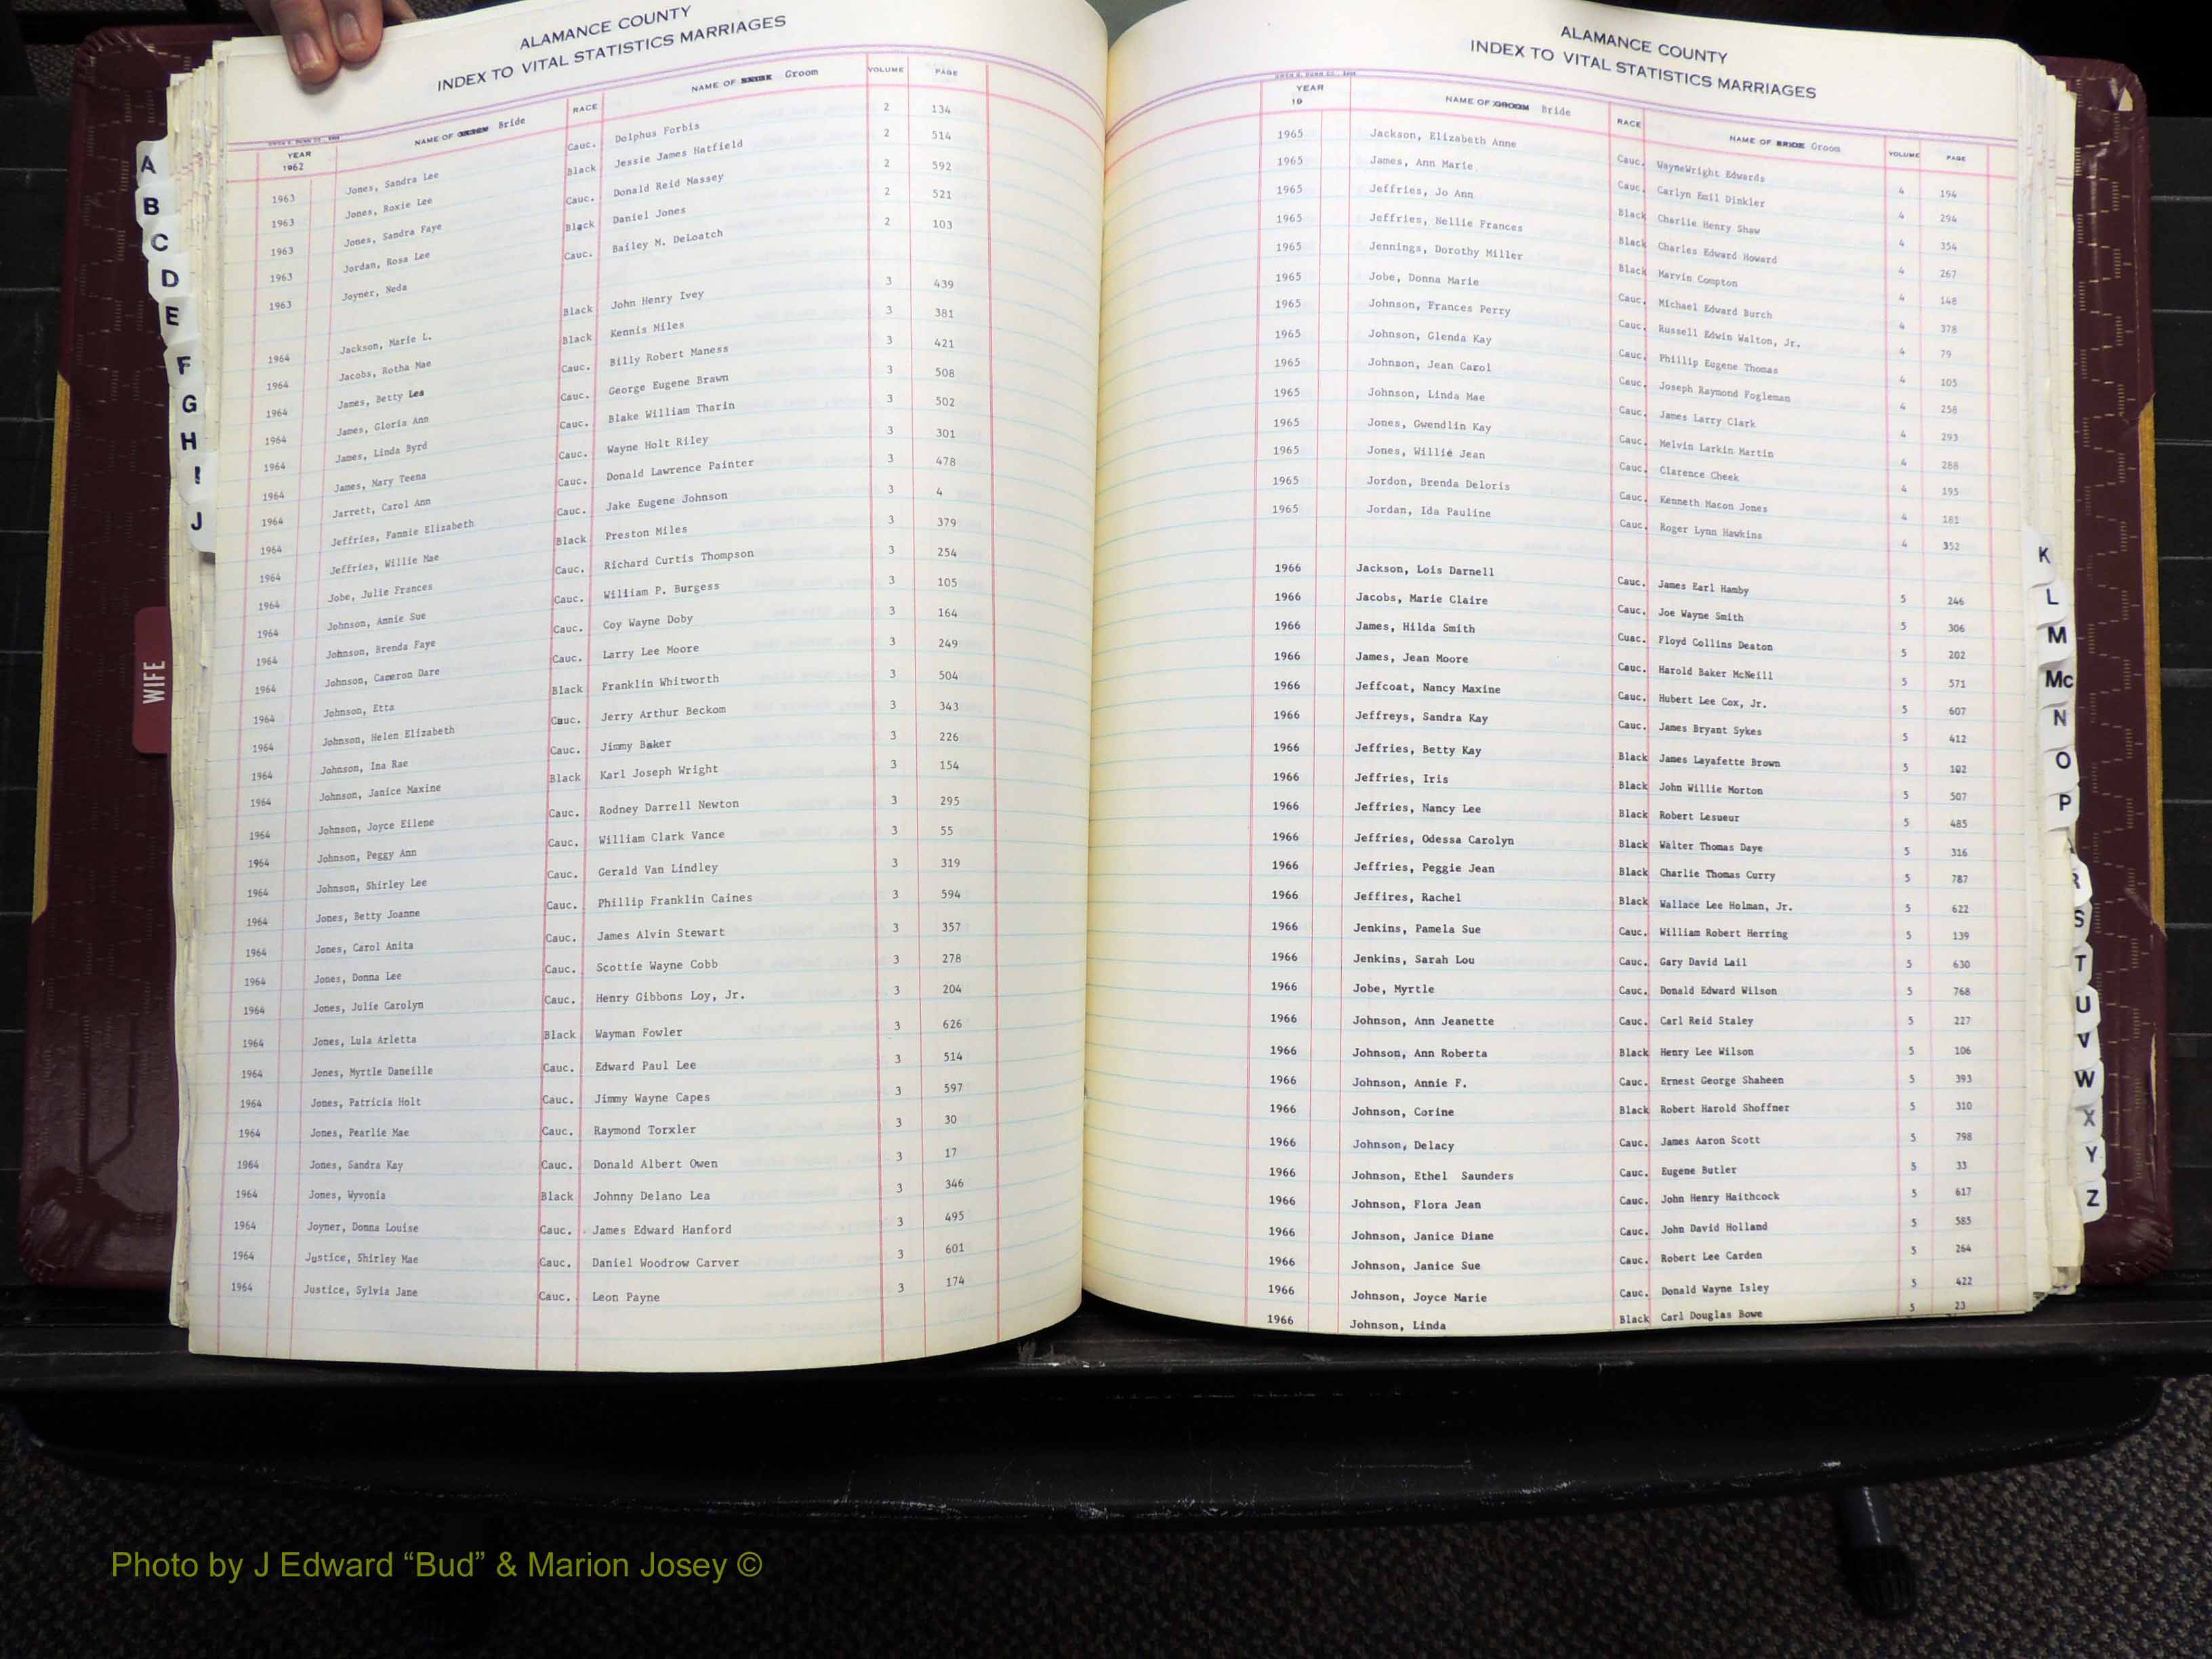 A
B
C
D
E
F
G
H
I
J
WIFE
ALAMANCE COUNTY
INDEX TO VITAL STATISTICS MARRIAGES
YEAR 1962 NAME OF Bride RACE NAME OF BRIDE Groom VOLUME PAGE
1963 Jones, Sandra Lee Cauc. Dolphus Forbis 2 134
1963 Jones, Roxie Lee Black Jessie James Hatfield 2 514
1963 Jones, Sandra Faye Cauc. Donald Reid Massey 2 592
1963 Jordan, Rosa Lee Black Daniel Jones 2 521
1963 Joyner, Neda Cauc. Bailey M. DeLoatch 2 103
1964 Jackson, Marie L. Black John Henry Ivey 3 439
1964 Jacobs, Rotha Mae Black Kennis Miles 3 381
1964 James, Betty Lea Cauc. Billy Robert Maness 3 421
1964 James, Gloria Ann Cauc. George Eugene Brawn 3 508
1964 James, Linda Byrd Cauc. Blake William Tharin 3 502
1964 James, Mary Teena Cauc. Wayne Holt Riley 3 301
1964 Jarrett, Carol Ann Cauc. Donald Lawrence Painter 3 478
1964 Jeffries, Fannie Elizabeth Cauc. Jake Eugene Johnson 3 4
1964 Jeffries, Willie Mae Black Preston Miles 3 379
1964 Jobe, Julie Frances Cauc. Richard Curtis Thompson 3 254
1964 Johnson, Annie Sue Cauc. William P. Burgess 3 105
1964 Johnson, Brenda Faye Cauc. Coy Wayne Doby 3 164
1964 Johnson, Cameron Dare Cauc. Larry Lee Moore 3 249
1964 Johnson, Etta Black Franklin Whitworth 3 504
1964 Johnson, Helen Elizabeth Cauc. Jerry Arthur Beckom 3 343
1964 Johnson, Ina Rae Cauc. Jimmy Baker 3 226
1964 Johnson, Janice Maxine Black Karl Joseph Wright 3 154
1964 Johnson, Joyce Eilene Cauc. Rodney Darrell Newton 3 295
1964 Johnson, Peggy Ann Cauc. William Clark Vance 3 55
1964 Johnson, Shirley Lee Cauc. Gerald Van Lindley 3 319
1964 Jones, Betty Joanne Cauc. Phillip Franklin Caines 3 594
1964 Jones, Carol Anita Cauc. James Alvin Stewart 3 357
1964 Jones, Donna Lee Cauc. Scottie Wayne Cobb 3 278
1964 Jones, Julie Carolyn Cauc. Henry Gibbons Loy, Jr. 3 204
1964 Jones, Lula Arletta Black Wayman Fowler 3 626
1964 Jones, Myrtle Daneille Cauc. Edward Paul Lee 3 514
1964 Jones, Patricia Holt Cauc. Jimmy Wayne Capes 3 597
1964 Jones, Pearlie Mae Cauc. Raymond Torxler 3 30
1964 Jones, Sandra Kay Cauc. Donald Albert Owen 3 17
1964 Jones, Wyvonia Black Johnny Delano Lea 3 346
1964 Joyner, Donna Louise Cauc. James Edward Hanford 3 495
1964 Justice, Shirley Mae Cauc. Daniel Woodrow Carver 3 601
1964 Justice, Sylvia Jane Cauc. Leon Payne 3 174
ALAMANCE COUNTY
INDEX TO VITAL STATISTICS MARRIAGES
YEAR 19 NAME OF GROOM Bride RACE NAME OF BRIDE Groom VOLUME PAGE
1965 Jackson, Elizabeth Anne Cauc. WayneWright Edwards 4 194
1965 James, Ann Marie Cauc. Carlyn Emil Dinkler 4 294
1965 Jeffries, Jo Ann Black Charlie Henry Shaw 4 354
1965 Jeffries, Nellie Frances Black Charles Edward Howard 4 267
1965 Jennings, Dorothy Miller Black Marvin Compton 4 148
1965 Jobe, Donna Marie Cauc. Michael Edward Burch 4 378
1965 Johnson, Frances Perry Cauc. Russell Edwin Walton, Jr. 4 79
1965 Johnson, Glenda Kay Cauc. Phillip Eugene Thomas 4 105
1965 Johnson, Jean Carol Cauc. Joseph Raymond Fogleman 4 258
1965 Johnson, Linda Mae Cauc. James Larry Clark 4 293
1965 Jones, Gwendlin Kay Cauc. Melvin Larkin Martin 4 288
1965 Jones, Willie Jean Cauc. Clarence Cheek 4 195
1965 Jordon, Brenda Deloris Cauc. Kenneth Macon Jones 4 181
1965 Jordan, Ida Pauline Cauc. Roger Lynn Hawkins 4 352
1966 Jackson, Lois Darnell Cauc. James Earl Hamby 5 246
1966 Jacobs, Marie Claire Cauc. Joe Wayne Smith 5 306
1966 James, Hilda Smith Cuac. Floyd Collins Deaton 5 202
1966 James, Jean Moore Cauc. Harold Baker McNeill 5 571
1966 Jeffcoat, Nancy Maxine Cauc. Hubert Lee Cox, Jr. 5 607
1966 Jeffreys, Sandra Kay Cauc. James Bryant Sykes 5 412
1966 Jeffries, Betty Kay Black James Layafette Brown 5 102
1966 Jeffries, Iris Black John Willie Morton 5 507
1966 Jeffries, Nancy Lee Black Robert Lesueur 5 485
1966 Jeffries, Odessa Carolyn Black Walter Thomas Daye 5 316
1966 Jeffries, Peggie Jean Black Charlie Thomas Curry 5 787
1966 Jeffires, Rachel Black Wallace Lee Holman, Jr. 5 622
1966 Jenkins, Pamela Sue Cauc. William Robert Herring 5 139
1966 Jenkins, Sarah Lou Cauc. Gary David Lail 5 630
1966 Jobe, Myrtle Cauc. Donald Edward Wilson 5 768
1966 Johnson, Ann Jeanette Cauc. Carl Reid Staley 5 227
1966 Johnson, Ann Roberta Black Henry Lee Wilson 5 106
1966 Johnson, Annie F. Cauc. Ernest George Shaheen 5 393
1966 Johnson, Corine Black Robert Harold Shoffner 5 310
1966 Johnson, Delacy Cauc. James Aaron Scott 5 798
1966 Johnson, Ethel Saunders Cauc. Eugene Butler 5 33
1966 Johnson, Flora Jean Cauc. John Henry Haithcock 5 617
1966 Johnson, Janice Diane Cauc. John David Holland 5 585
1966 Johnson, Janice Sue Cauc. Robert Lee Carden 5 264
1966 Johnson, Joyce Marie Cauc. Donald Wayne Isley 5 422
1966 Johnson, Linda Black Carl Douglas Bowe 5 23
K
L
M
Mc
N
O
P
R
S
T
U
V
W
X
Y
Z
Photo by J Edward “Bud” & Marion Josey ©